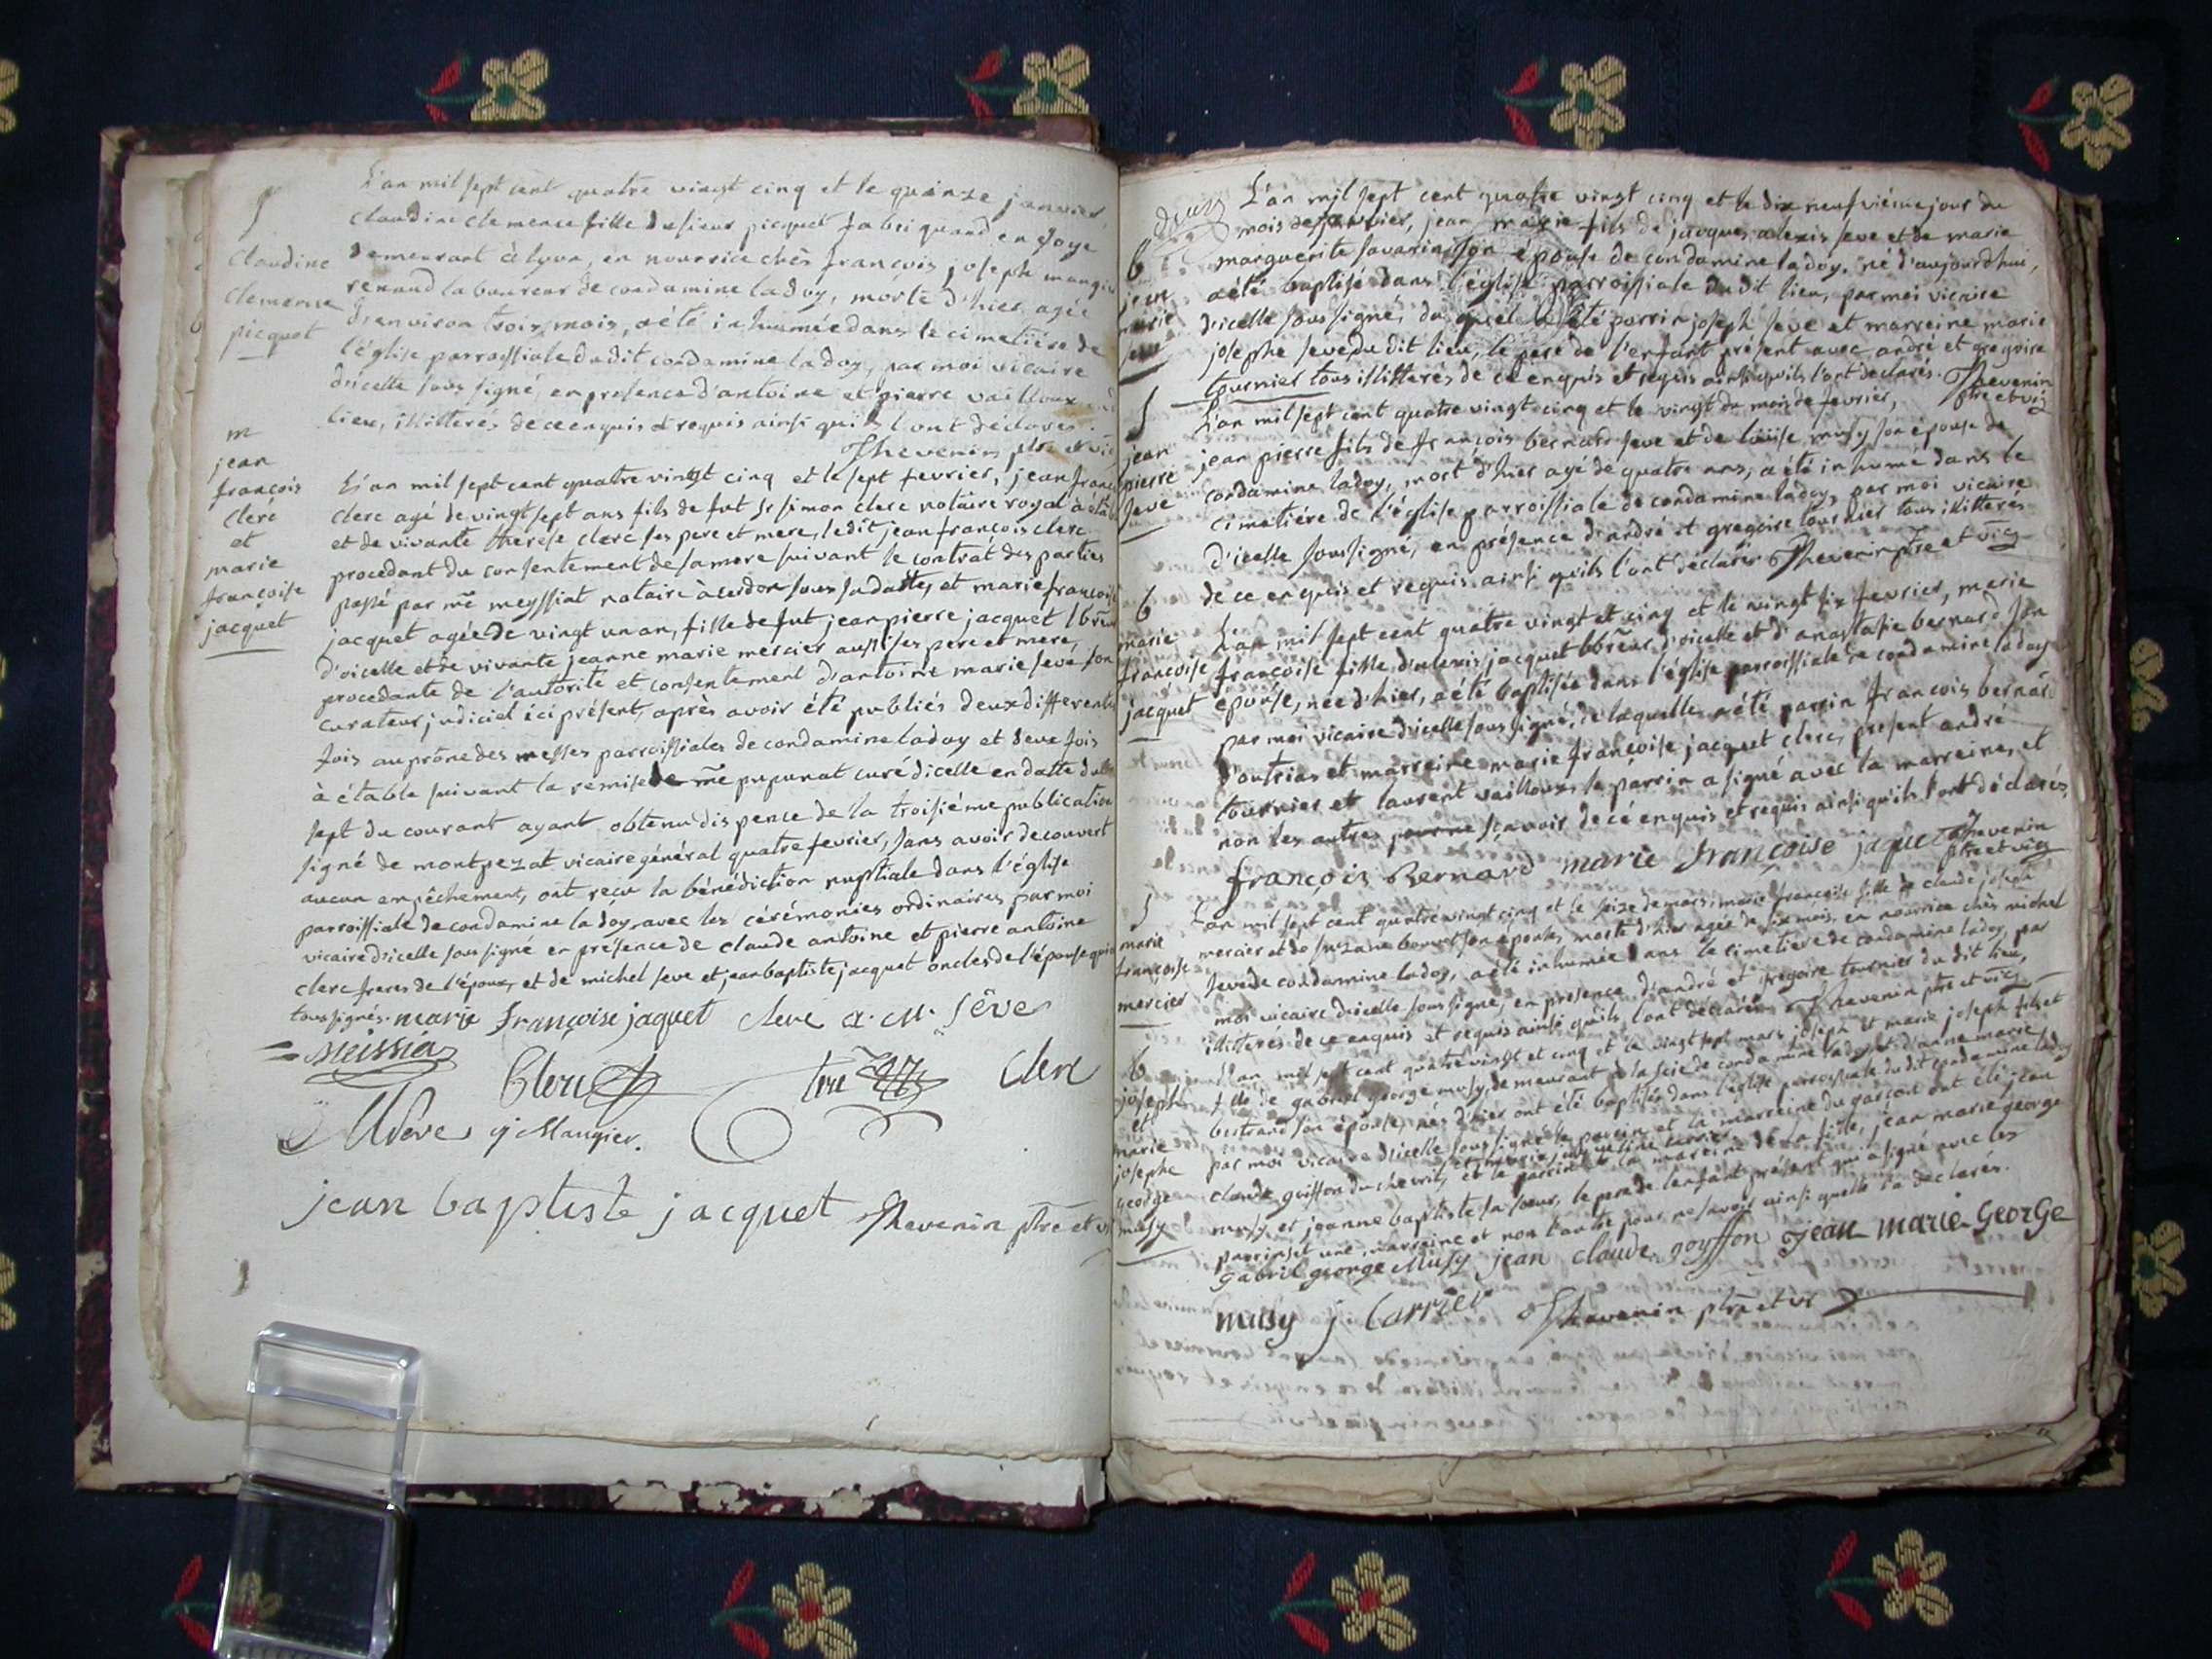 L'an mil sept cent quatre vingt cinq et le quinze janvier
claudine clemence fille du sieur picquet fabriquand en soye
demeurant à lyon, en nourrice chès françois joseph
renaud laboureur de condamine ladoy, morte d'hier agée
d'environ trois mois, a été inhumée dans le cimetière de
l'église parroissiale dudit condamine ladoy, par moi vicaire
d'icelle sous signé, en presence d'antoine et pierre vailloux
lieu, illitterés de ce enquis et requis ainsi qu'ils l'ont déclarés.
Thevenin ptre et vic
S
claudine
clemence
picquet
m
jean
françois
clerc
et
marie
françoise
jacquet
L'an mil sept cent quatre vingt cinq et le sept fevrier, jean
clerc agé de vingt sept ans fils de fut sr simon clerc notaire royal à
et de vivante therese clerc ses pere et mere, ledit jean françois clerc
procedant du consentement de sa mere suivant le contrat des parties
passé par me meyssiat notaire à cerdon sous sa datte, et marie françoise
jacquet agée de vingt un an, fille de fut jean pierre jacquet lbreur
d'oicelle et de vivante jeanne marie mercier aussi ses pere et mere,
procedante de l'autorité et consentement d'antoine marie seve son
curateur judiciel ici présent, après avoir été publiés deux differentes
fois au prône des messes parroissiales de condamine ladoy et deux fois
à étable suivant la remise de me pupunat curé d'icelle en datte du
sept du courant ayant obtenu dispence de la troisiéme publication
signé de montpezat vicaire général quatre fevrier, sans avoir decouvert
aucun empêchement, ont reçu la bénédiction nuptiale dans l'église
parroissiale de condamine ladoy avec les cérémonies ordinaires par moi
vicaire d'icelle sous signé en présence de claude antoine et pierre antoine
clerc freres de l'époux, et de michel seve et jean baptiste jacquet oncles de l'épouse qui
tous signés. marie françoise jaquet clerc a. m. Sêve
Meissia
Clerc Clerc
MSeve j Maugier.
jean baptiste jacquet Thevenin ptre et vi
L'an mil sept cent quatre vingt cinq et le dix neufviéme jour du
mois de janvier, jean marie fils de jacques alexis seve et de marie
marguerite savarin son épouse de condamine ladoy, né d'aujourdhui,
a été baptisé dans l'église parroissiale dudit lieu, par moi vicaire
d'icelle sous signé, du quel a été parrin joseph seve et marreine marie
josephe seve du dit lieu, le pere de l'enfant présent avec andré et gregoire
tournier tous illitterés de ce enquis et requis ainsi qu'ils l'ont declarés. Thevenin
ptre et vic
b
jean
marie
seve
S
jean
pierre
seve
L'an mil sept cent quatre vingt cinq et le vingt du mois de fevrier,
jean pierre fils de françois bernard seve et de loüise musy son épouse de
condamine ladoy, mort d'hier agé de quatre ans, a été inhumé dans le
cimetiére de l'église parroissiale de condamine ladoy, par moi vicaire
d'icelle soussigné, en présence d'andré et gregoire tournier tous illitterés
de ce enquis et requis ainsi qu'ils l'ont declarés Thevenin ptre et vic
b
marie
françoise
jacquet
L'an mil sept cent quatre vingt et cinq et le vingt six fevrier, marie
françoise fille d'alexis jacquet lbreur d'oicelle et d'anastasie bernard son
épouse, née d'hier, a été baptisée dans l'église parroissiale de condamine ladoy
par moi vicaire d'icelle sous signé, de laquelle a été parrin françois bernard
d'outriaz et marreine marie françoise jacquet clerc, present andré
tournier et laurent vailloux, le parrin a signé avec la marreine, et
non les autres pour ne sçavoir de cé enquis et requis ainsi qu'ils l'ont déclarés,
françois Bernard marie françoise jaquet Thevenin
ptre et vic
S
marie
françoise
mercier
L'an mil sept cent quatre vingt cinq et le seize de mars, marie françoise fille de claude joseph
mercier et de suzane son épouse, morte d'hier agée de six mois, en nourrice chès michel
seve de condamine ladoy, a été inhumée dans le cimetiére de condamine ladoy, par
moi vicaire d'icelle sous signé, en presence d'andré et gregoire tournier du dit lieu,
illitterés de ce enquis et requis ainsi qu'ils l'ont declarés Thevenin ptre et vic
b
joseph
et
marie
josephe
george
musy
L'an mil sept cent quatre vingt et cinq et le vingt sept mars joseph et marie joseph fils et
fille de gabriel george musy, demeurant à la scie de condamine ladoy et d'anne marie
bertrand son épouse, nés d'hier ont été baptisés dans l'église parroissiale du dit condamine ladoy
par moi vicaire d'icelle sous signé le parrin et la marreine du garçon ont été jean
claude goiffon du chevril, et le parrin et la marreine de la fille, jean marie george
musy et jeanne baptiste sa soeur, le pere de l'enfant présent qui a signé avec les
parrins et une marreine et non l'autre pour ne savoir ainsi quelle l'a declarés.
gabriel george Musy jean claude goyffon jean marie George
musy j Carrier Thevenin ptre et vi